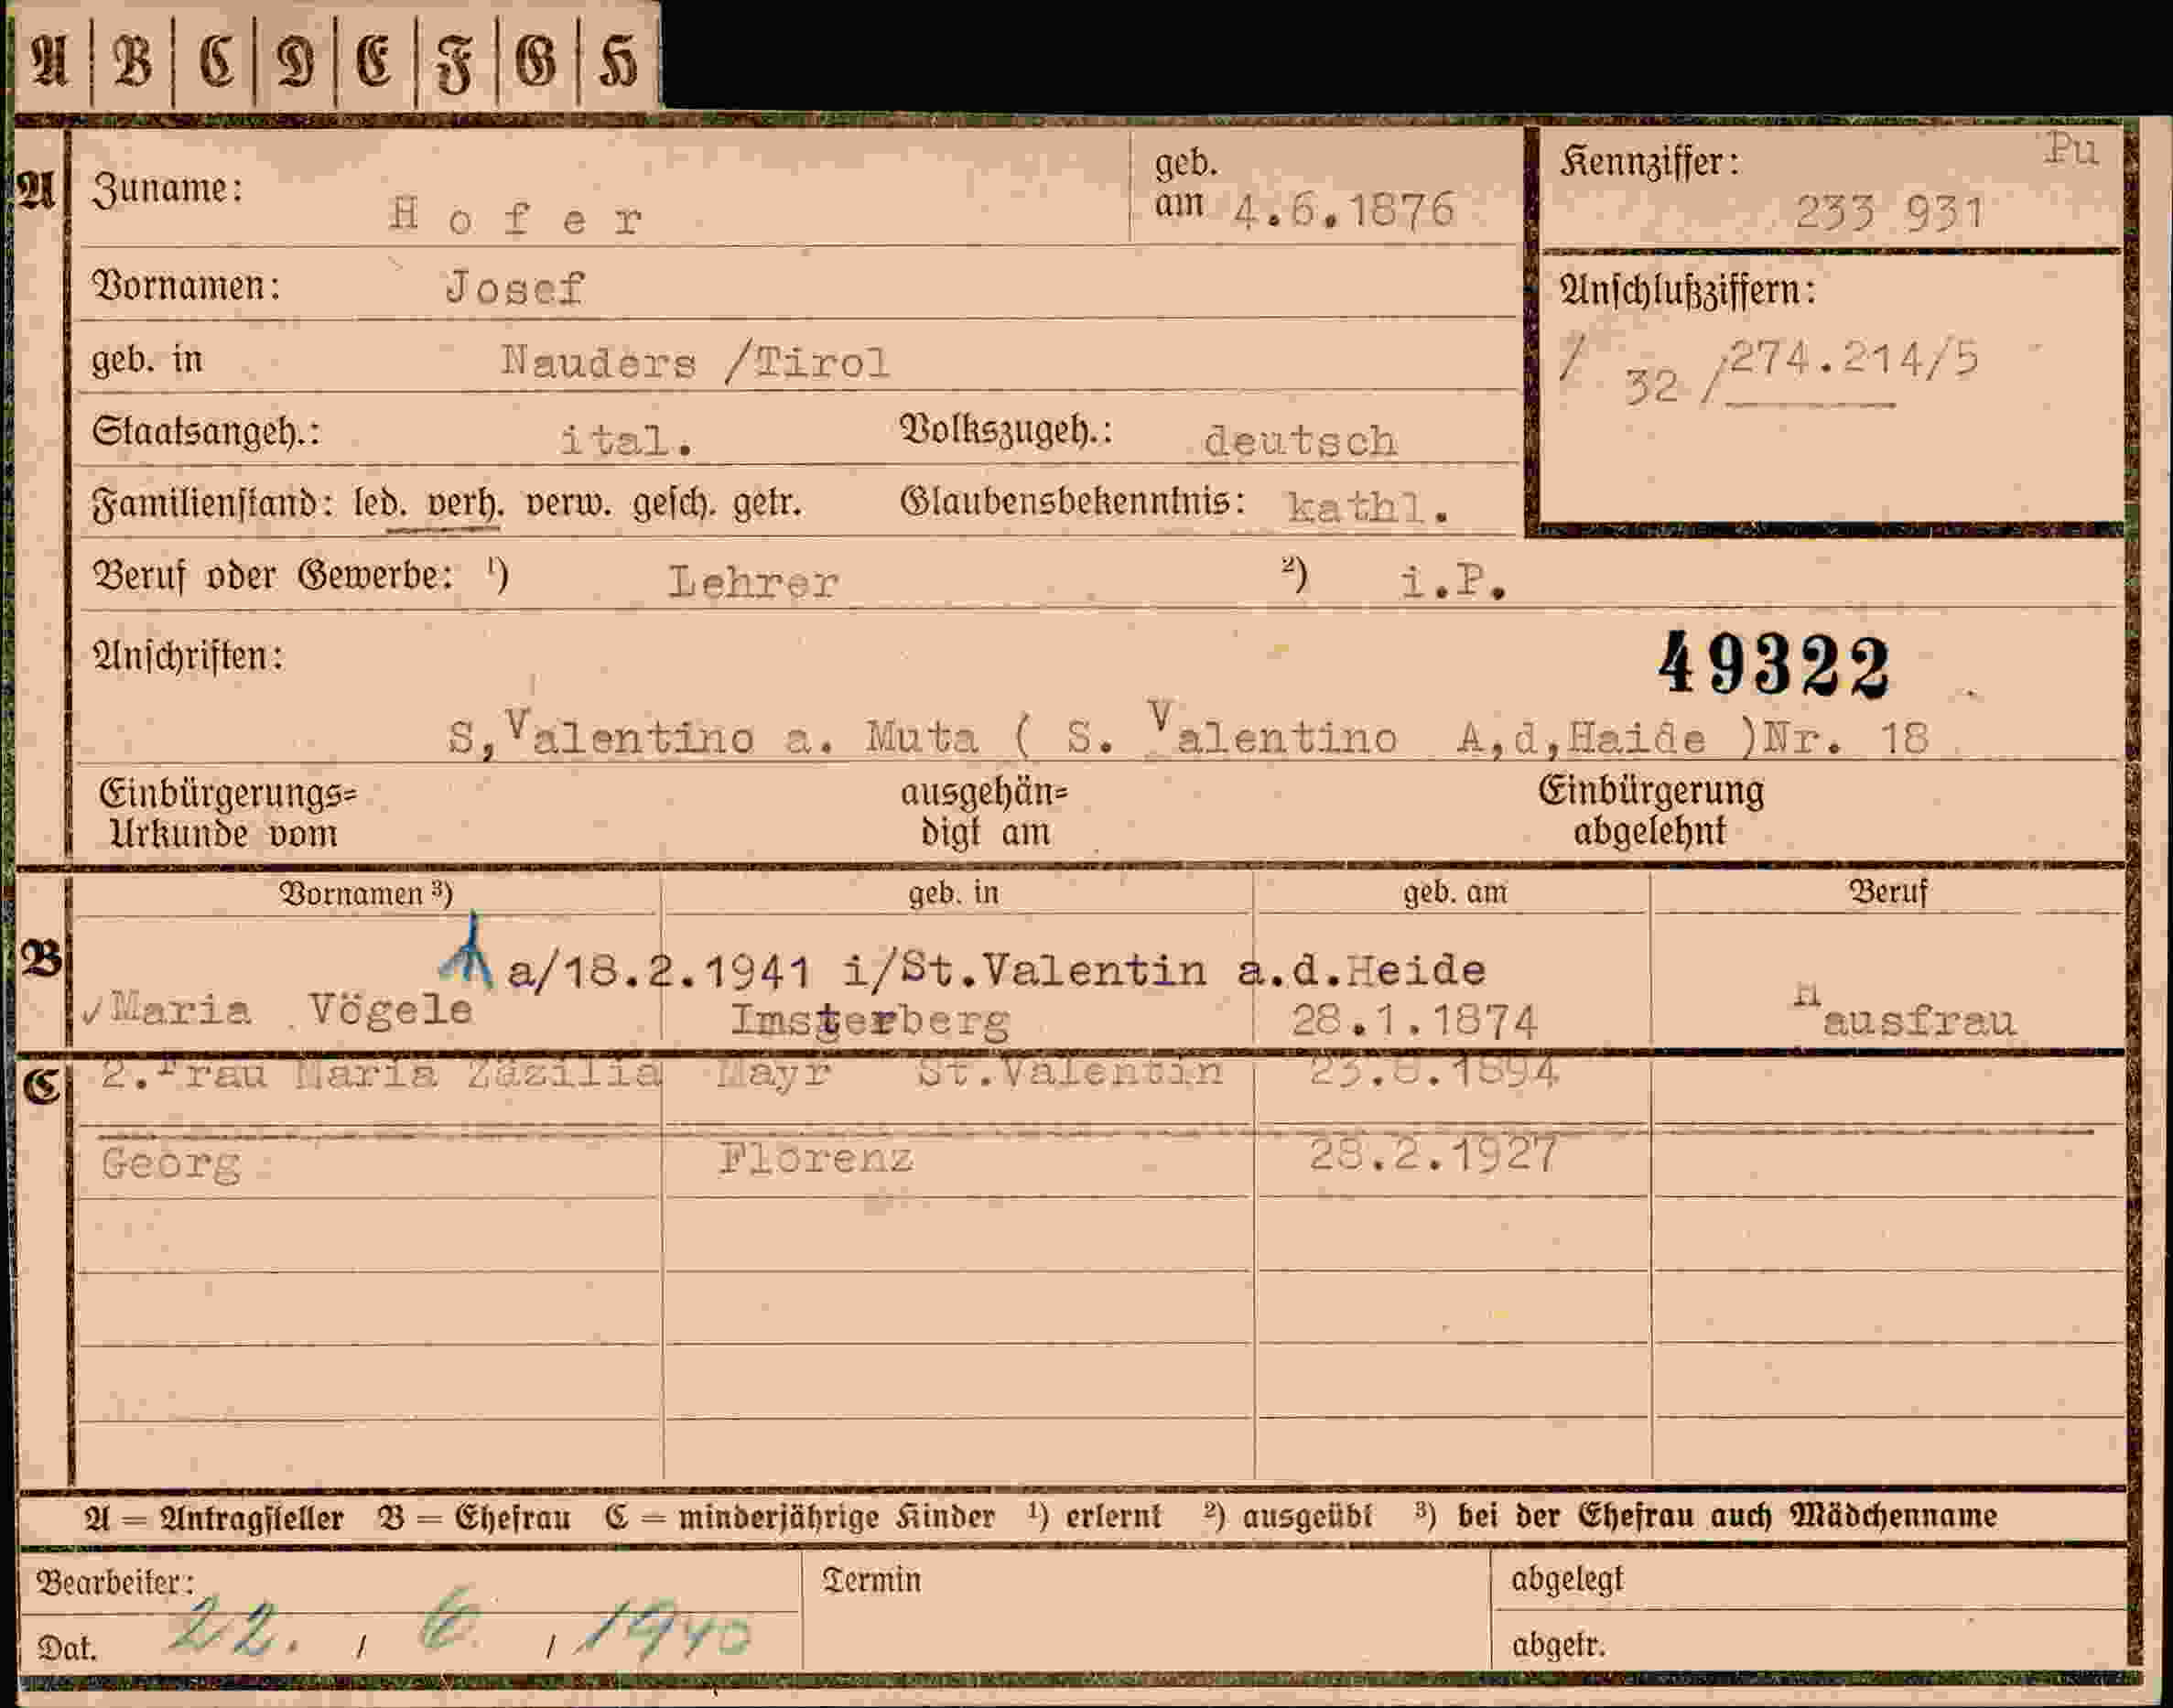 A | B | C | D | E | F | G | H
A Zuname: Hofer geb. am 4.6.1876 Kennziffer: Pu 233 931
Vornamen: Josef Anschlußziffern:
geb. in Nauders /Tirol / 32 /274.214/5
Staatsangeh.: ital. Volkszugeh.: deutsch
Familienstand: led. verh. verw. gesch. getr. Glaubensbekenntnis: kathl.
Beruf oder Gewerbe: ¹) Lehrer ²) i.P.
Anschriften: 49322
S,Valentino a. Muta ( S. Valentino A,d,Haide )Nr. 18
Einbürgerungs= ausgehän= Einbürgerung
Urkunde vom digt am abgelehnt
Vornamen ³) geb. in geb. am Beruf
B a/18.2.1941 i/St.Valentin a.d.Heide
✓Maria Vögele Imsterberg 28.1.1874 Hausfrau
C 2.Frau Maria Zäzilia Mayr St.Valentin 23.8.1894
Georg Florenz 28.2.1927
A = Antragsteller B = Ehefrau C = minderjährige Kinder ¹) erlernt ²) ausgeübt ³) bei der Ehefrau auch Mädchenname
Bearbeiter: Termin abgelegt
Dat. 22. / 6. / 1940 abgetr.